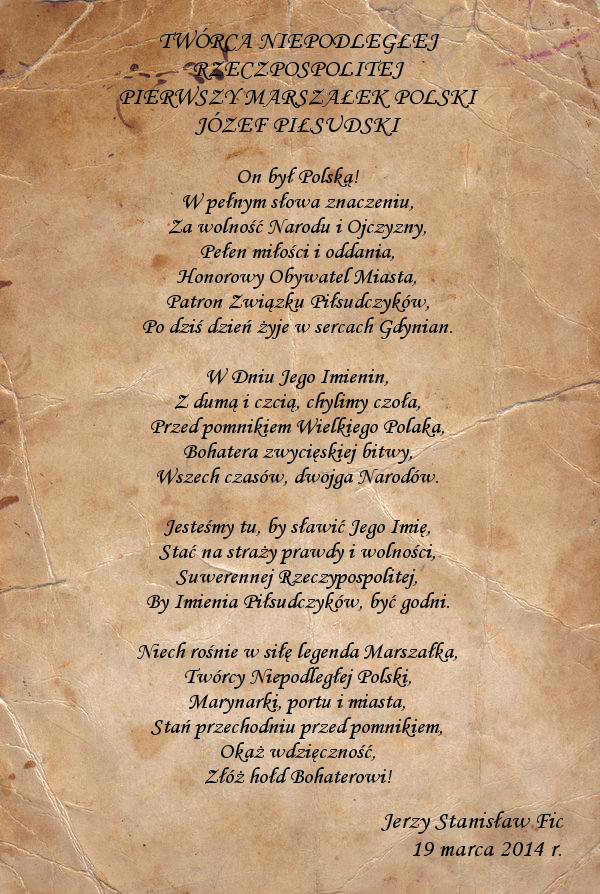 TWÓRCA NIEPODLEGŁEJ
RZECZPOSPOLITEJ
PIERWSZY MARSZAŁEK POLSKI
JÓZEF PIŁSUDSKI
On był Polską!
W pełnym słowa znaczeniu,
Za wolność Narodu i Ojczyzny,
Pełen miłości i oddania,
Honorowy Obywatel Miasta,
Patron Związku Piłsudczyków,
Po dziś dzień żyje w sercach Gdynian.
W Dniu Jego Imienin,
Z dumą i czcią, chylimy czoła,
Przed pomnikiem Wielkiego Polaka,
Bohatera zwycięskiej bitwy,
Wszech czasów, dwojga Narodów.
Jesteśmy tu, by sławić Jego Imię,
Stać na straży prawdy i wolności,
Suwerennej Rzeczypospolitej,
By Imienia Piłsudczyków, być godni.
Niech rośnie w siłę legenda Marszałka,
Twórcy Niepodległej Polski,
Marynarki, portu i miasta,
Stań przechodniu przed pomnikiem,
Okaż wdzięczność,
Złóż hołd Bohaterowi!
Jerzy Stanisław Fic
19 marca 2014 r.